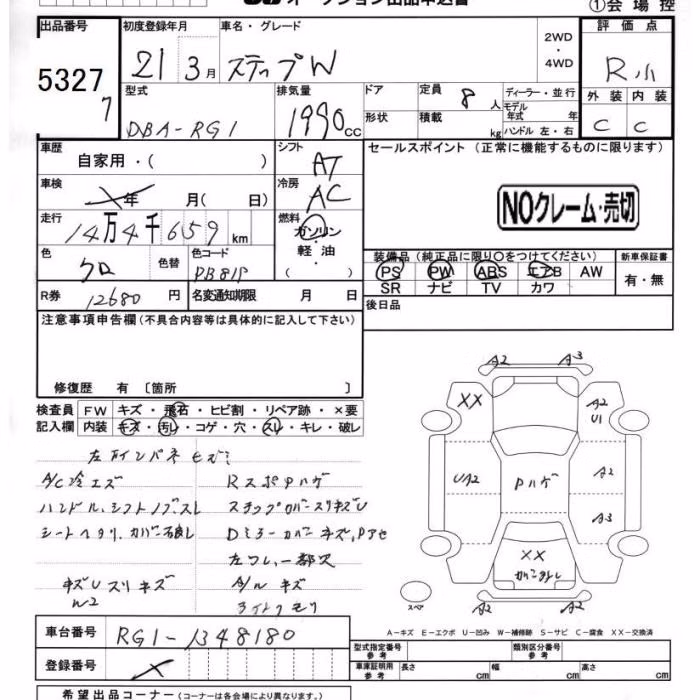 オークション出品申込書
①会場控
出品番号
5327
7
初度登録年月
21 3月
車名・グレード
ステップW
2WD
・
4WD
評価点
R小
外装 内装
C C
型式
DBA-RG1
排気量
1990cc
ドア
形状
定員 8人
積載 kg
ディーラー・並行
モデル年式 年
ハンドル 左・右
車歴
自家用・( )
シフト
AT
セールスポイント(正常に機能するものに限ります)
車検
年 月( 日)
冷房
AC
NOクレーム・売切
走行
14万4千659km
燃料
ガソリン
軽油
( )
色
クロ
色替
色コード
PB81P
装備品(純正品に限り○をつけてください)
PS PW ABS エアB AW
SR ナビ TV カワ
新車保証書
有・無
R券
12680円
名変通知期限 月 日
後日品
注意事項申告欄(不具合内容等は具体的に記入して下さい)
修復歴 有〔箇所 〕
検査員 FW キズ・飛石・ヒビ割・リペア跡・×要
記入欄 内装 キズ・汚レ・コゲ・穴・スレ・キレ・破レ
A/C冷エズ
ハンドル、シフトノブスレ
キズUスリキズ
W2
A/W キズ
ライトクモリ
A2 A3
XX
A2
U1
UA2
Pハゲ
A2
A3
XX
A2 A2
スペア
A-キズ E-エクボ U-凹み W-補修跡 S-サビ C-腐食 XX-交換済
車台番号
RG1-1348180
登録番号
型式指定番号
参考
類別区分番号
参考
車庫証明用
参考
長さ cm 幅 cm 高さ cm
希望出品コーナー(コーナーは各会場により異なります。)